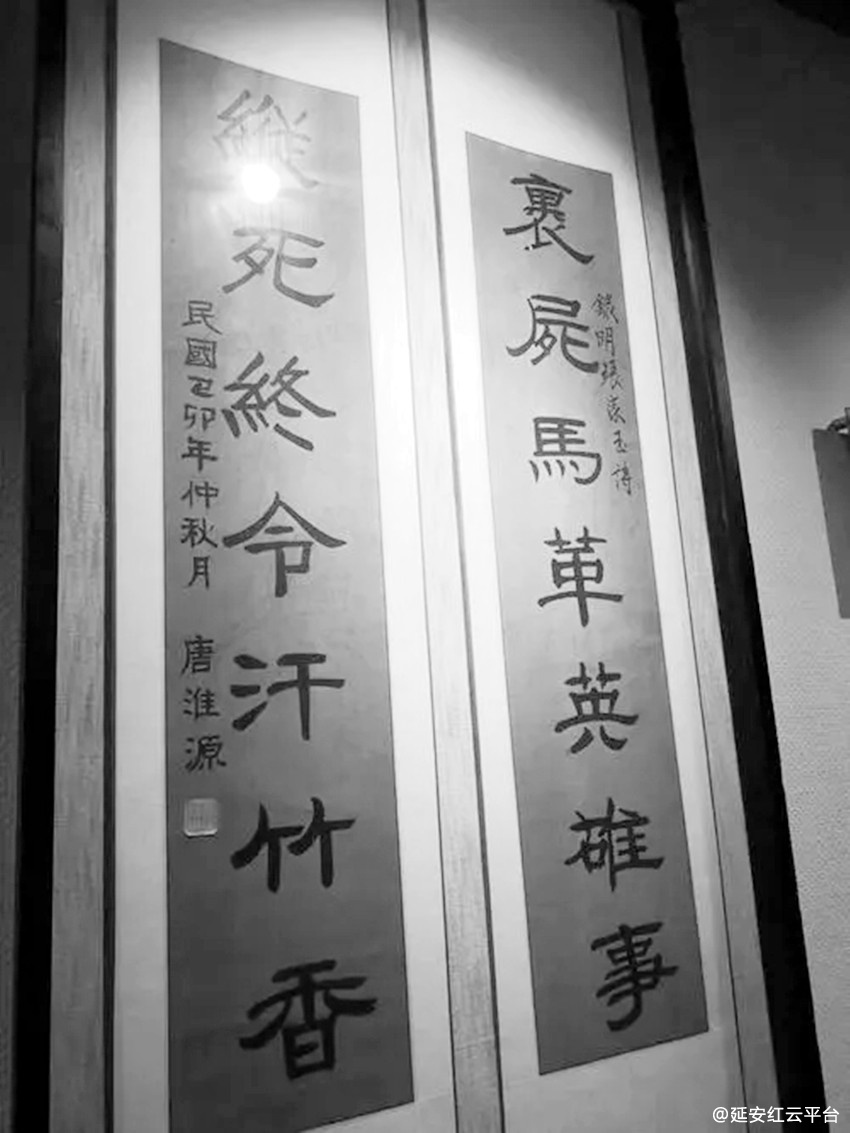 裹屍馬革英雄事
錄明張家玉詩
縱死終令汗竹香
民國己卯年仲秋月 唐淮源
@延安红云平台